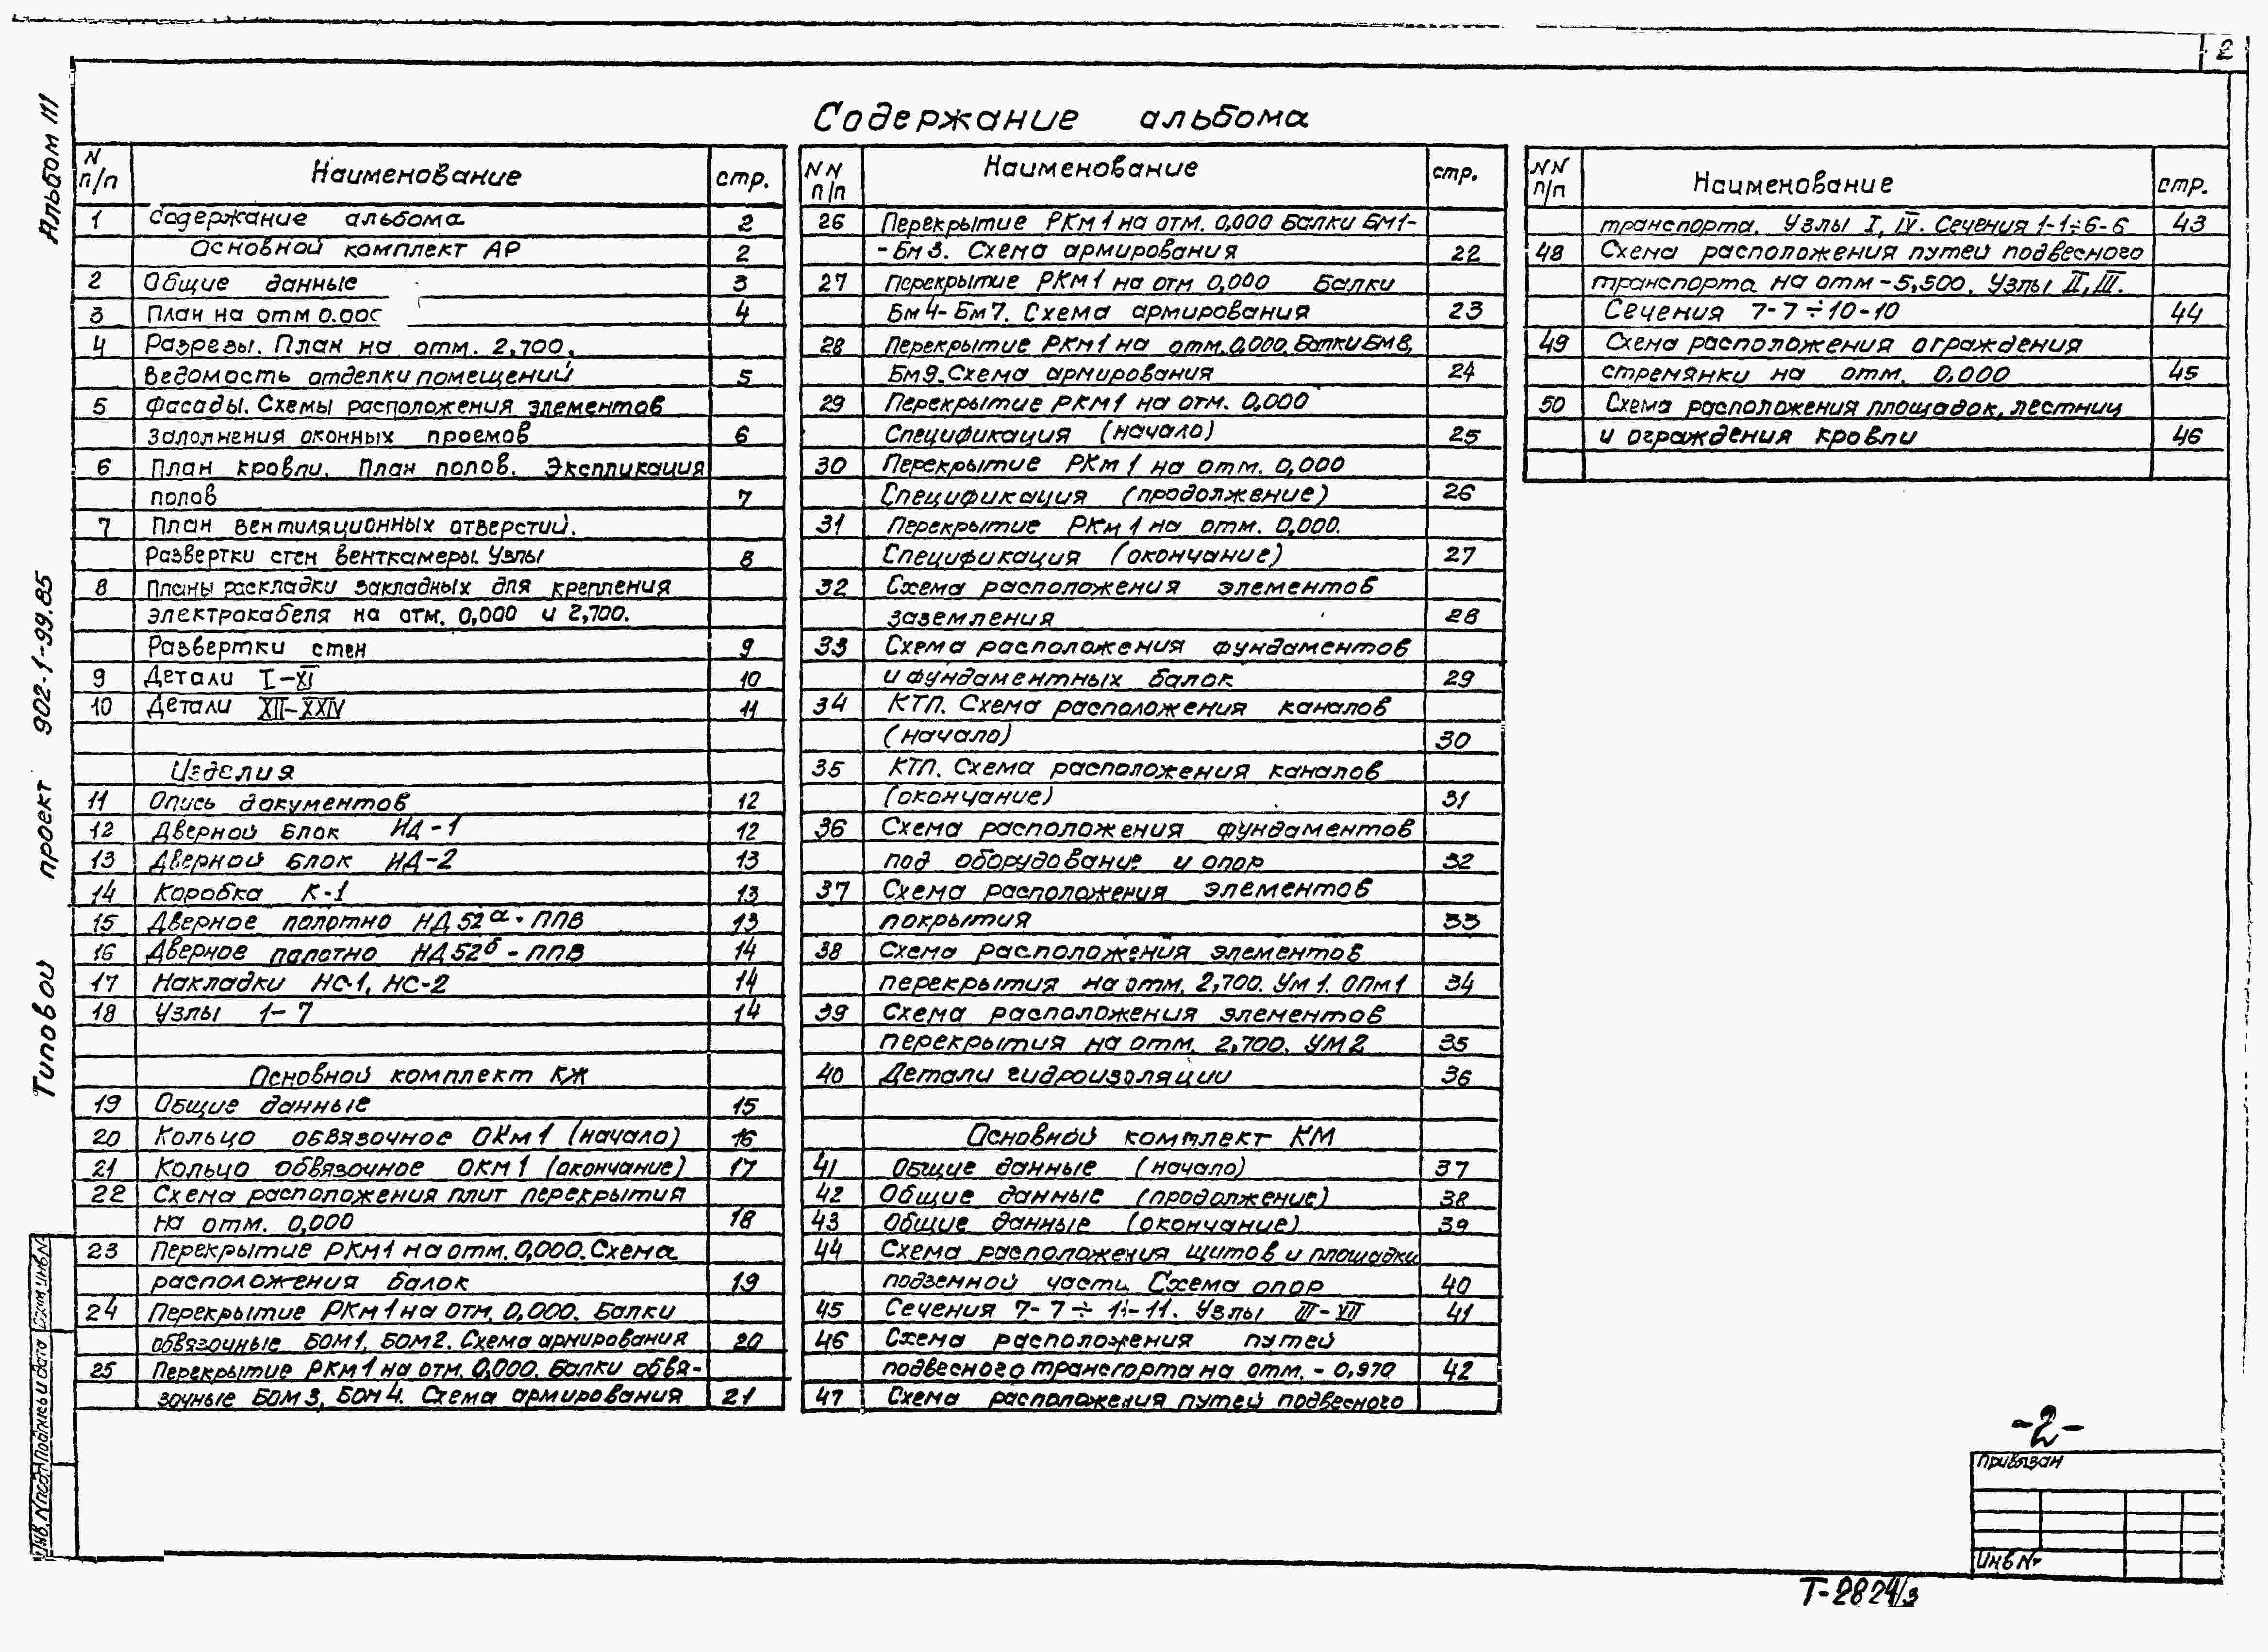 2
Содержание альбома
Альбом III
Типовой проект 902-1-99.85
N п/п Наименование стр.
1 Содержание альбома 2
Основной комплект АР 2
2 Общие данные 3
3 План на отм 0.000 4
4 Разрезы. План на отм. 2,700.
Ведомость отделки помещений 5
5 Фасады. Схемы расположения элементов
заполнения оконных проемов 6
6 План кровли. План полов. Экспликация
полов 7
7 План вентиляционных отверстий.
Развертки стен венткамеры. Узлы 8
8 Планы раскладки закладных для крепления
электрокабеля на отм. 0,000 и 2,700.
Развертки стен 9
9 Детали I-XI 10
10 Детали XII-XXIV 11
Изделия
11 Опись документов 12
12 Дверной блок НД-1 12
13 Дверной блок НД-2 13
14 Коробка К-1 13
15 Дверное полотно НД52а-ППВ 13
16 Дверное полотно НД52б-ППВ 14
17 Накладки НС-1, НС-2 14
18 Узлы 1-7 14
Основной комплект КЖ
19 Общие данные 15
20 Кольцо обвязочное ОКм1 (начало) 16
21 Кольцо обвязочное ОКм1 (окончание) 17
22 Схема расположения плит перекрытия
на отм. 0,000 18
23 Перекрытие РКм1 на отм. 0,000. Схема
расположения балок 19
24 Перекрытие РКм1 на отм. 0,000. Балки
обвязочные БОМ1, БОМ2. Схема армирования 20
25 Перекрытие РКм1 на отм. 0,000. Балки обвя-
зочные БОМ3, БОМ4. Схема армирования 21
NN п/п Наименование стр.
26 Перекрытие РКм1 на отм. 0,000 Балки БМ1-
-БМ3. Схема армирования 22
27 Перекрытие РКм1 на отм 0,000 Балки
БМ4-БМ7. Схема армирования 23
28 Перекрытие РКм1 на отм. 0,000. Балки БМ8,
БМ9. Схема армирования 24
29 Перекрытие РКм1 на отм. 0,000
Спецификация (начало) 25
30 Перекрытие РКм1 на отм. 0,000
Спецификация (продолжение) 26
31 Перекрытие РКм1 на отм. 0,000.
Спецификация (окончание) 27
32 Схема расположения элементов
заземления 28
33 Схема расположения фундаментов
и фундаментных балок 29
34 КТП. Схема расположения каналов
(начало) 30
35 КТП. Схема расположения каналов
(окончание) 31
36 Схема расположения фундаментов
под оборудование и опор 32
37 Схема расположения элементов
покрытия 33
38 Схема расположения элементов
перекрытия на отм. 2,700. Ум1. ОПм1 34
39 Схема расположения элементов
перекрытия на отм. 2,700. УМ2 35
40 Детали гидроизоляции 36
Основной комплект КМ
41 Общие данные (начало) 37
42 Общие данные (продолжение) 38
43 Общие данные (окончание) 39
44 Схема расположения щитов и площадки
подземной части. Схема опор 40
45 Сечения 7-7÷11-11. Узлы III-VII 41
46 Схема расположения путей
подвесного транспорта на отм. -0,970 42
47 Схема расположения путей подвесного
NN п/п Наименование стр.
транспорта. Узлы I, IV. Сечения 1-1÷6-6 43
48 Схема расположения путей подвесного
транспорта на отм -5,500. Узлы II, III.
Сечения 7-7÷10-10 44
49 Схема расположения ограждения
стремянки на отм. 0,000 45
50 Схема расположения площадок, лестниц
и ограждения кровли 46
-2-
Привязан
Инв №
Инв. N подл. Подпись и дата Взам инв N
Т-2824/3